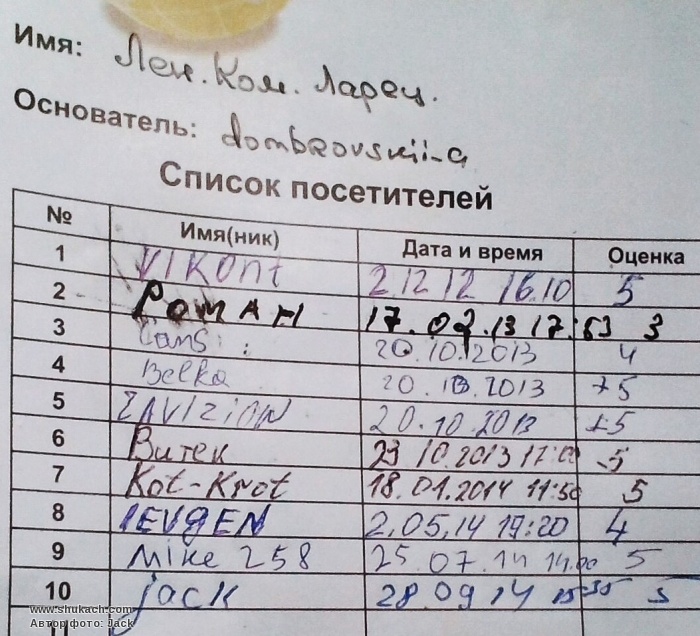 Имя: Лен. Ком. Ларец.
Основатель: dombrovskii-a
Список посетителей
№ Имя(ник) Дата и время Оценка
1 VIKOnt 2 12 12 16.10 5
2 РОМАН 17.02.13 17:53 3
3 20.10.2013 4
4 Belka 20.10.2013 +5
5 ZAVIZION 20.10.2013 +5
6 Витек 23 10.2013 5
7 Kot-Krot 18.01.2014 11:50 5
8 IEVGEN 2.05.14 19:20 4
9 Mike 258 25.07.14 14.00 5
10 jack 28.09.14 15:35 5
11
www.shukach.com
Автор фото: Jack